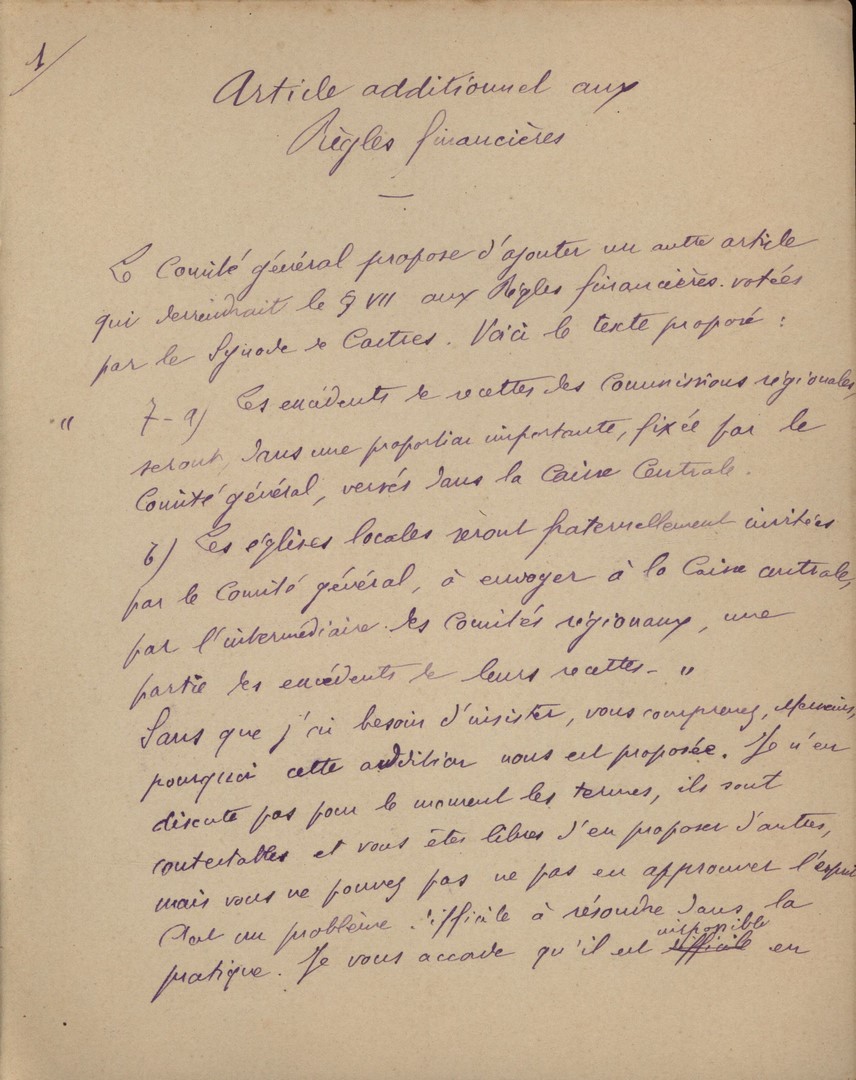 1/
Article additionnel aux
Règles financières
Le Comité général propose d'ajouter un autre article
qui deviendrait le § VII aux Règles financières votées
par le Synode de Castres. Voici le texte proposé :
" 7 - a) Les excédents de recettes des Commissions régionales,
seront, dans une proportion importante, fixée par le
Comité général, versés dans la Caisse Centrale.
b) Les églises locales seront fraternellement invitées
par le Comité général, à envoyer à la Caisse centrale,
par l'intermédiaire des Comités régionaux, une
partie des excédents de leurs recettes - "
Sans que j'ai besoin d'insister, vous comprenez, Messieurs,
pourquoi cette addition nous est proposée. Je n'en
discute pas pour le moment les termes, ils sont
contestables et vous êtes libres d'en proposer d'autres,
mais vous ne pouvez pas ne pas en approuver l'esprit
C'est un problème difficile à résoudre dans la
pratique. Je vous accorde qu'il est difficile impossible en